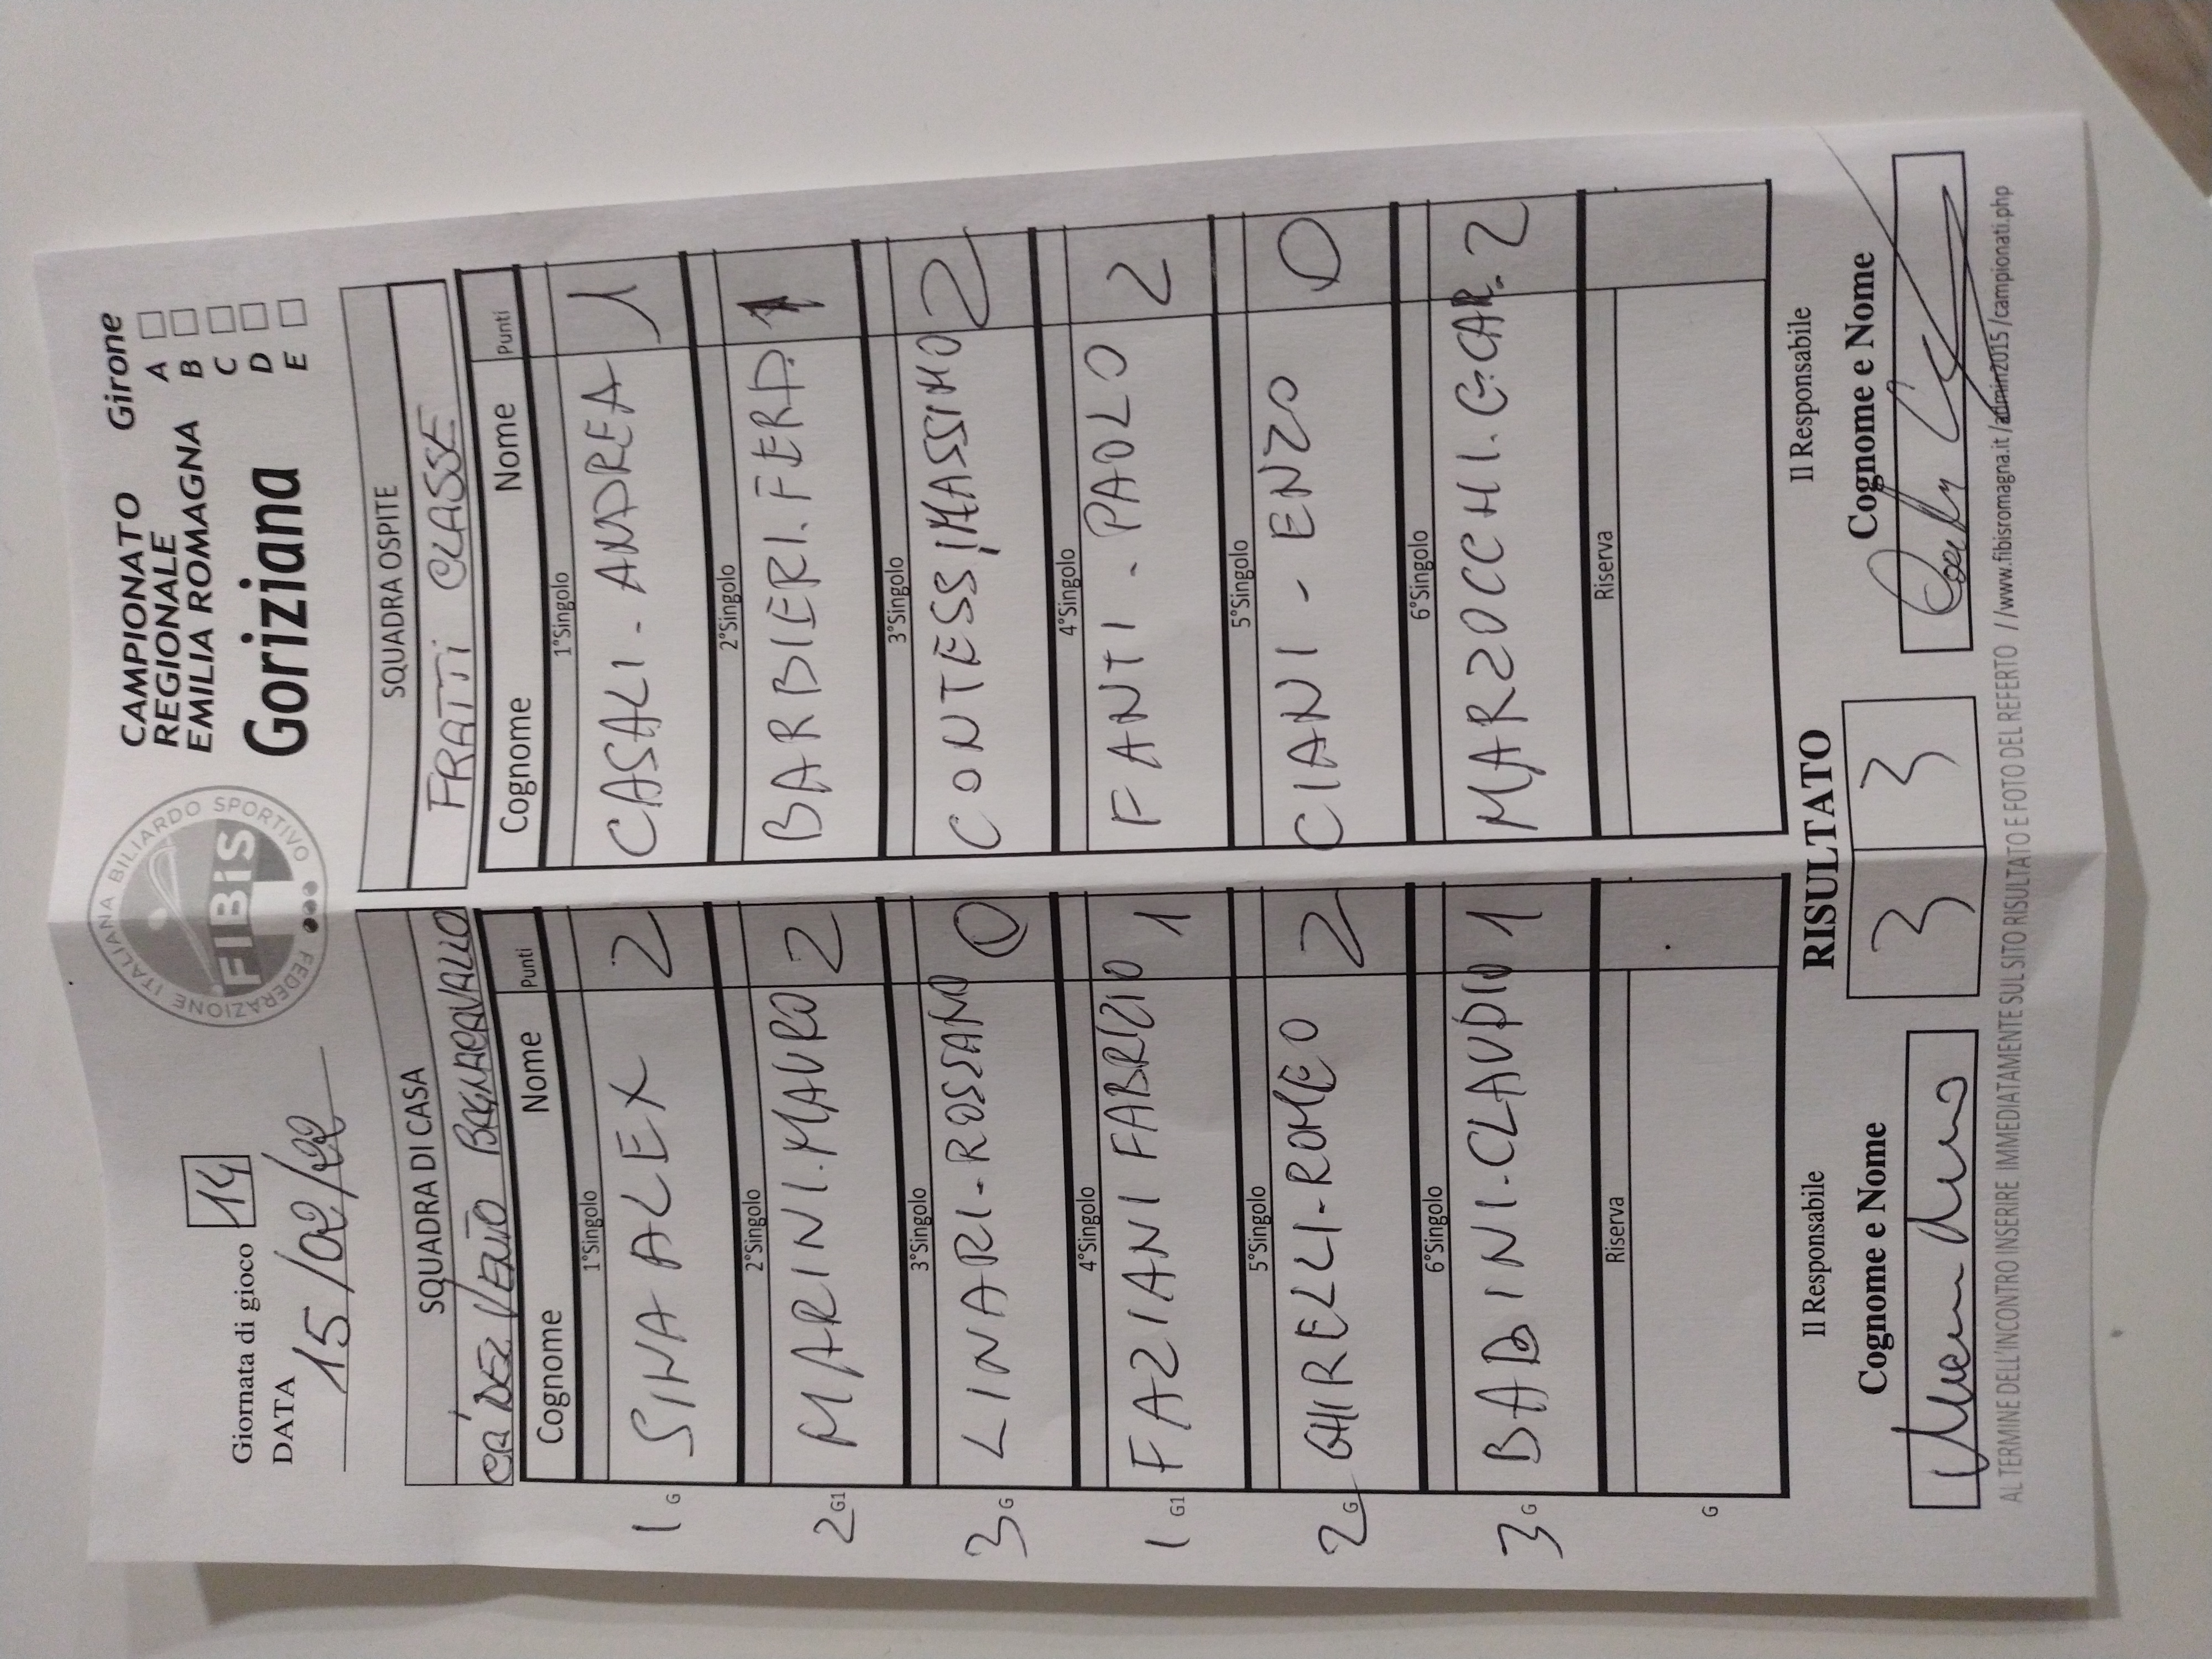 Giornata di gioco 14
DATA
15/02/22
FEDERAZIONE ITALIANA BILIARDO SPORTIVO
FIBiS
CAMPIONATO
REGIONALE
EMILIA ROMAGNA
Goriziana
Girone
A
B
C
D
E
SQUADRA DI CASA
CA' DEL VENTO BAGNACAVALLO
Cognome Nome Punti
1°Singolo
1 G SINA ALEX 2
2°Singolo
2 G1 MARINI.MAURO 2
3°Singolo
3 G LINARI-ROSSANO 0
4°Singolo
1 G1 FAZIANI FABRIZIO 1
5°Singolo
2 G GHIRELLI-ROMEO 2
6°Singolo
3 G BADINI-CLAUDIO 1
Riserva
G
SQUADRA OSPITE
FRATTI CLASSE
Cognome Nome Punti
1°Singolo
CASALI - ANDREA 1
2°Singolo
BARBIERI.FERD. 1
3°Singolo
CONTESSI MASSIMO 2
4°Singolo
FANTI - PAOLO 2
5°Singolo
CIANI - ENZO 0
6°Singolo
MARZOCCHI.G.CAR. 2
Riserva
Il Responsabile
Cognome e Nome
RISULTATO
3 3
Il Responsabile
Cognome e Nome
AL TERMINE DELL'INCONTRO INSERIRE IMMEDIATAMENTE SUL SITO RISULTATO E FOTO DEL REFERTO //www.fibisromagna.it/admin2015/campionati.php